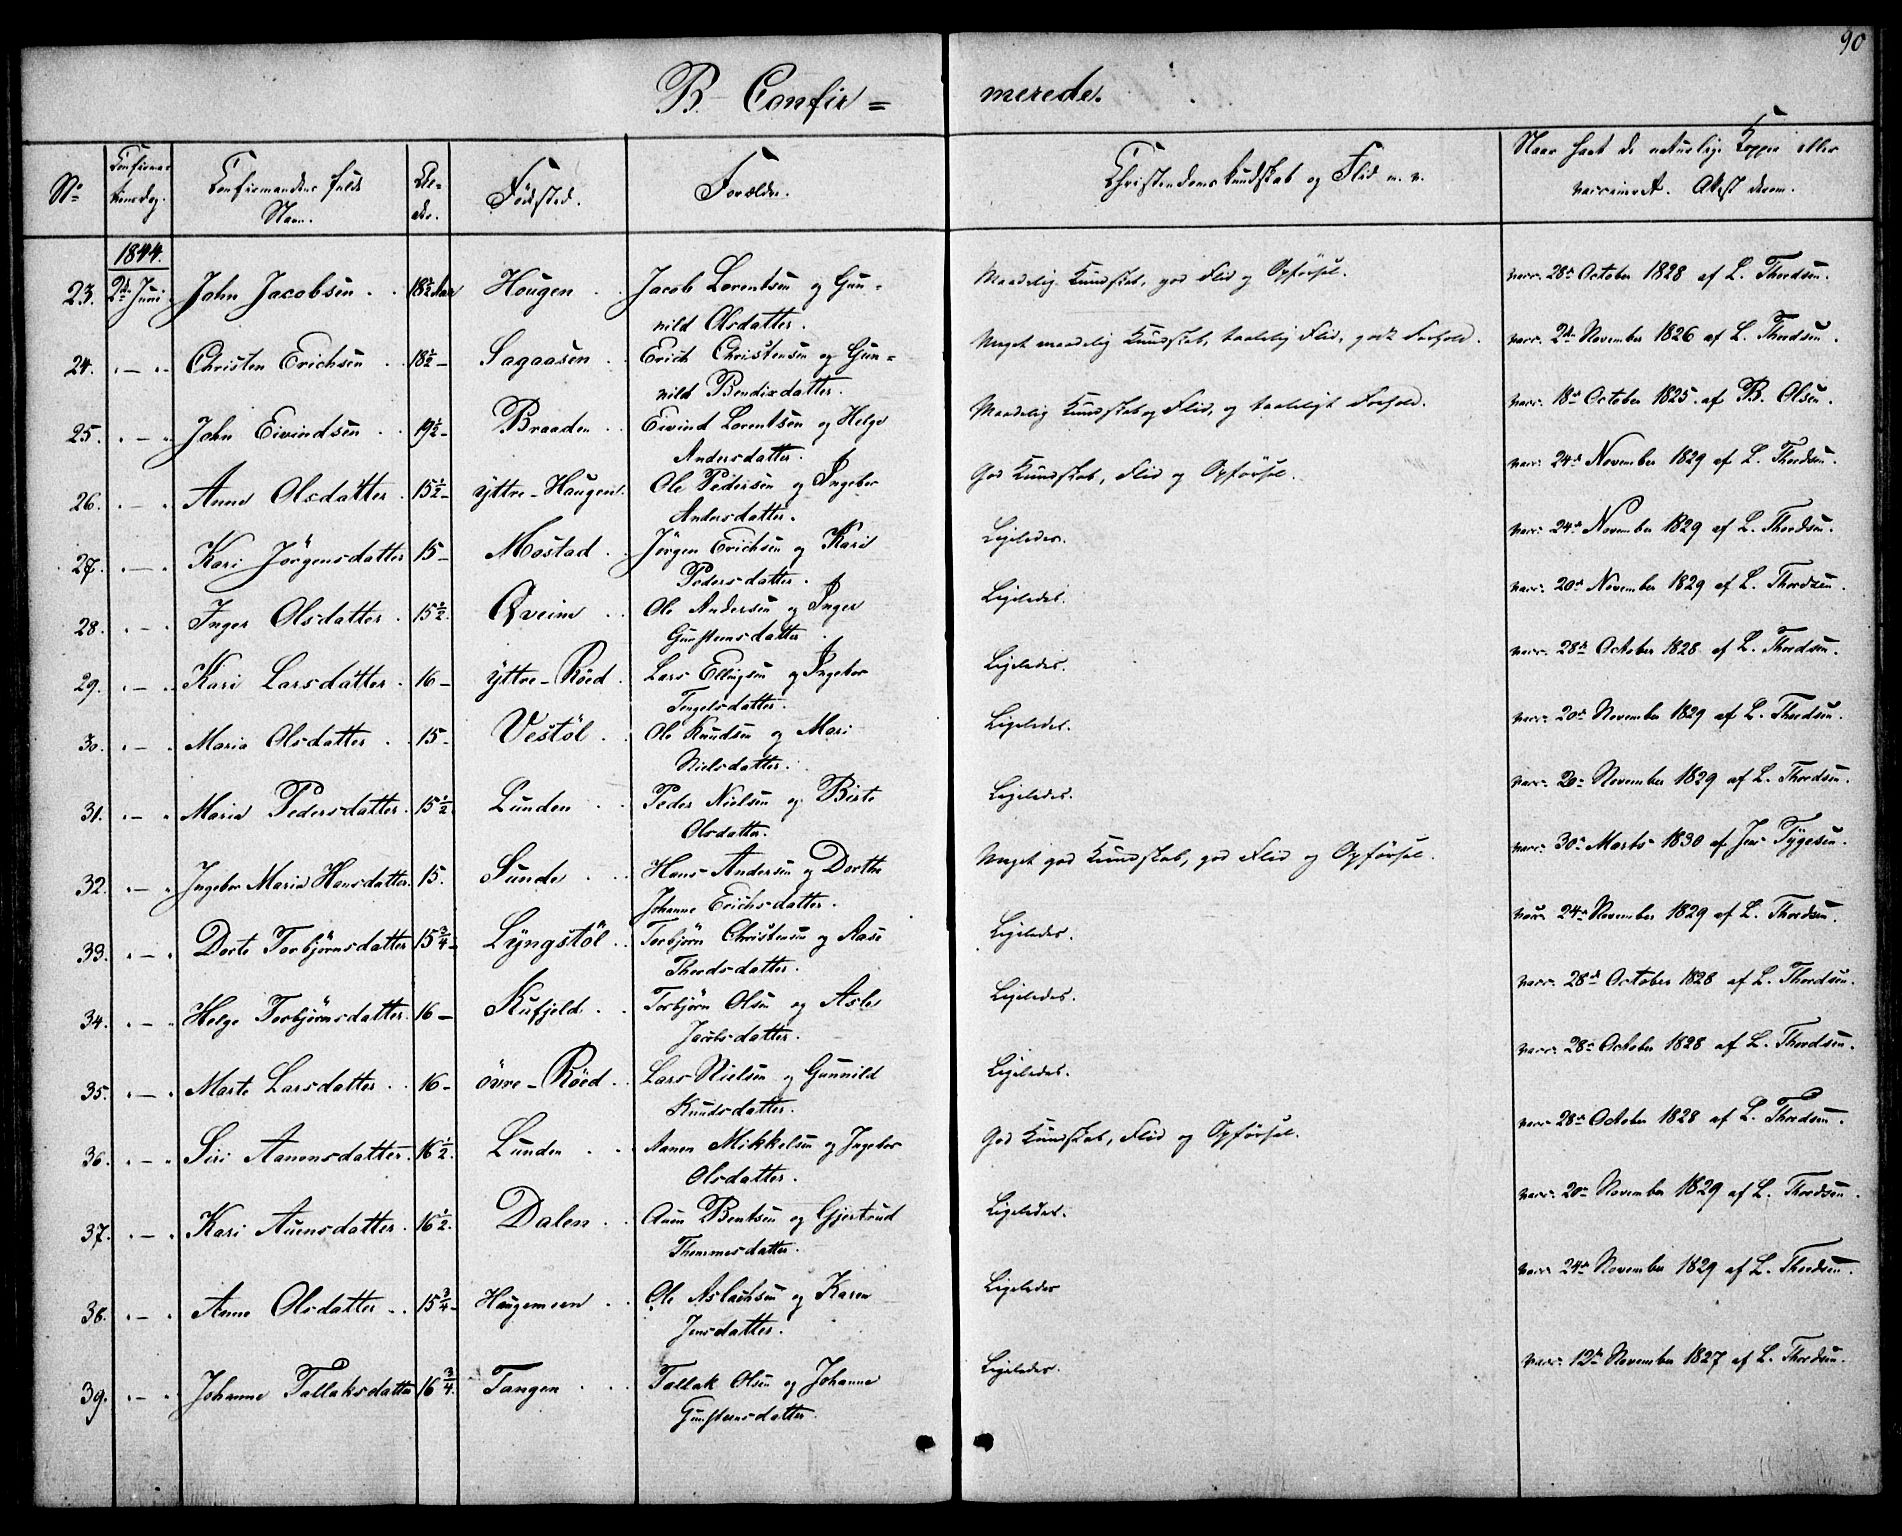 90
B. Confir= merede.
No | Confirmationsdag. | Confirmandens fulde Navn. | Alder. | Fødested. | Forældre. | Christendoms Kundskab og Flid m. v. | Naar havt de naturlige Kopper eller vaccineret. Attest derom.
1844.
23. 2den Juni. John Jacobsen . . 18½ Aar Hougen . . Jacob Lorentsen og Gun= Maadelig Kundskab, god Flid og Opførsel. vacc. 28de October 1828 af L. Thordsen.
nild Olsdatter.
24. " — " Christen Erichsen . . 18½ – Sagaasen . Erich Christensen og Gun= Meget maadelig Kundskab, taalelig Flid, godt Forhold. vacc. 2den November 1826 af L. Thordsen.
nild Bendixdatter.
25. " — " John Eivindsen . . 19½ – Braaden . . Eivind Lorentsen og Helge Maadelig Kundskab og Flid, og taaleligt Forhold. vacc. 18de October 1825 af B. Olsen.
Andersdatter.
26. " — " Anne Olsdatter . 15½ – ÿttre-Haugen . Ole Pedersen og Ingebor God Kundskab, Flid og Opførsel. vacc. 24de November 1829 af L. Thordsen.
Andersdatter.
27. " — " Kari Jörgensdatter 15 – Mostad . . Jörgen Erichsen og Kari Ligeledes. vacc. 24de November 1829 af L. Thordsen.
Pedersdatter.
28. " — " Inger Olsdatter . 15½. Qveim . . Ole Andersen og Inger Ligeledes. vacc. 20de November 1829 af L. Thordsen.
Gunstensdatter.
29. " — " Kari Larsdatter . 16 – ÿttre-Röed . Lars Ellingsen og Ingebor Ligeledes. vacc. 28de October 1828 af L. Thordsen.
Engelsdatter.
30. " — " Maria Olsdatter . . 15 – Vestöl . . Ole Knudsen og Mari Ligeledes. vacc. 20de November 1829 af L. Thordsen.
Nielsdatter.
31. " — " Maria Pedersdatter . 15½. Lunden . . Peder Nielsen og Birte Ligeledes. vacc. 20de November 1829 af L. Thordsen.
Olsdatter.
32. " — " Ingebor Maria Hansdatter. 15. Sunde . . Hans Andersen og Dorthe Meget god Kundskab, god Flid og Opførsel. vacc. 30de Marts 1830 af Jens Tygesen.
Johanne Erichsdatter.
33. " — " Dorte Torbjörnsdatter 15¾ – Lÿngstöl . . Torbjörn Christensen og Aase Ligeledes. vacc. 24de November 1829 af L. Thordsen.
Thordsdatter.
34. " — " Helge Torbjörnsdatter. 16 – Kufjeld . . Torbjörn Olsen og Asle Ligeledes. vacc. 28de October 1828 af L. Thordsen.
Jacobsdatter.
35. " — " Marte Larsdatter . . 16 – övre-Röed . . Lars Nielsen og Gunnild Ligeledes. vacc. 28de October 1828 af L. Thordsen.
Knudsdatter.
36. " — " Siri Aanensdatter . 16½. Lunden . . Aanen Mikkelsen og Ingebor God Kundskab, Flid og Opførsel. vacc. 28de October 1828 af L. Thordsen.
Olsdatter.
37. " — " Kari Auensdatter . 16½. Dalen . . Auen Bentsen og Gjertrud Ligeledes. vacc. 20de November 1829 af L. Thordsen.
Thommesdatter.
38. " — " Anne Olsdatter . . 15¾ – Haugemoen . . Ole Aslachsen og Karen Ligeledes vacc. 24de November 1829 af L. Thordsen.
Jensdatter.
39. " — " Johanne Tallaksdatter 16¾. Tangen . . Tallak Olsen og Johanne Ligeledes. vacc. 12te November 1827 af L. Thordsen.
Gunstensdatter.